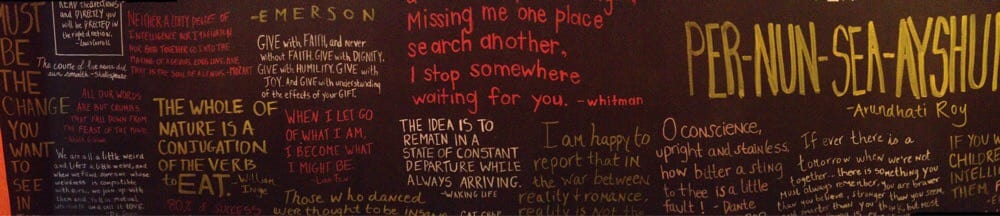 MUST
BE
THE
CHANGE
YOU
WANT
TO
SEE
IN
READ the directions
and DIRECTLY you
will be DIRECTED in
the right direction.
-Lewis Carroll
The course of true love never did
run smooth -Shakespeare
ALL OUR WORDS
ARE BUT CRUMBS
THAT FALL DOWN FROM
THE FEAST OF THE MIND.
We are all a little weird
and life's a little weird, and
when we find someone whose
weirdness is compatible
with ours, we join up with
them and fall in mutual
and call it LOVE.
NEITHER A LOFTY DEGREE OF
INTELLIGENCE NOR IMAGINATION
NOR BOTH TOGETHER GO INTO THE
MAKING OF A GENIUS. LOVE, LOVE, LOVE,
THAT IS THE SOUL OF A GENIUS. -MOZART
THE WHOLE OF
NATURE IS A
CONJUGATION
OF THE VERB
to EAT. -William
Inge
80% of SUCCESS
-EMERSON
GIVE with FAITH, and never
without FAITH. GIVE with DIGNITY.
GIVE with HUMILITY. GIVE with
JOY. And GIVE with understanding
of the effects of your GIFT.
WHEN I LET GO
OF WHAT I AM,
I BECOME WHAT
I MIGHT BE.
-Lao Tzu
Those who danced
were thought to be INSANE
Missing me one place
search another,
I stop somewhere
waiting for you. -whitman
THE IDEA IS TO
REMAIN IN A
STATE OF CONSTANT
DEPARTURE WHILE
ALWAYS ARRIVING.
-WAKING LIFE
I am happy to
report that in
the war between
reality & romance,
reality is not the
PER-NUN-SEA-AYSHUN
-Arundhati Roy
O conscience,
upright and stainless,
how bitter a sting
to thee is a little
fault! - Dante
If ever there is a
tomorrow when we're not
together... there is something you
must always remember. You are braver
than you believe, stronger than you seem,
and smarter than you think. but most
IF YOU W
CHILDREN
INTELLIG
THEM F